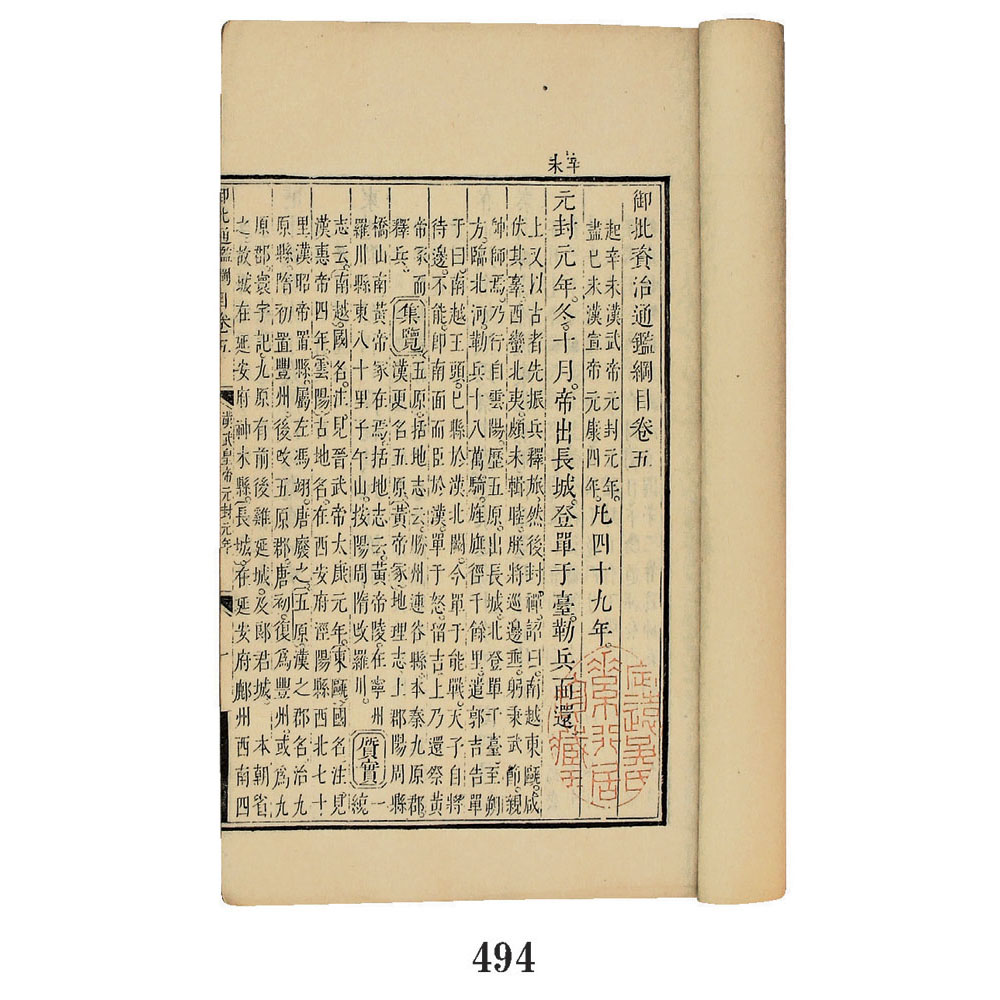 辛未
御批資治通鑑綱目卷五
起辛未漢武帝元封元年
盡己未漢宣帝元康四年
凡四十九年
元封元年冬十月帝出長城登單于臺勒兵而還
上又以古者先振兵釋旅然後封禪詔曰南越東甌咸
伏其辜西蠻北夷頗未輯睦朕將巡邊垂躬秉武節親
帥師焉乃行自雲陽歷五原出長城北登單于臺至朔
方臨北河勒兵十八萬騎旌旗徑千餘里遣郭吉告單
于曰南越王頭已縣於漢北闕今單于能戰天子自將
待邊不能即南面而臣於漢單于怒留吉上乃還祭黃
帝冢而
釋兵
集覽
五原括地志云勝州連谷縣本秦九原郡
漢更名五原黃帝冢地理志上郡陽周縣
橋山南黃帝冢在焉括地志云黃帝陵在寧州
羅川縣東八十里子午山按陽周隋改羅川
質實
一統
志云南越國名注見晉武帝大康元年東甌國名注見
漢惠帝四年雲陽古地名在西安府涇陽縣西北七十
里漢昭帝置縣屬左馮翊唐廢之五原漢之郡名治九
原縣隋初置豐州後改五原郡唐初復為豐州或為九
原郡寰宇記九原有前後雞延城及郎君城 本朝省
之故城在延安府神木縣長城在延安府鄜州西南四
御批通鑑綱目卷五
漢武皇帝元封元年
一
定遠吳氏
494